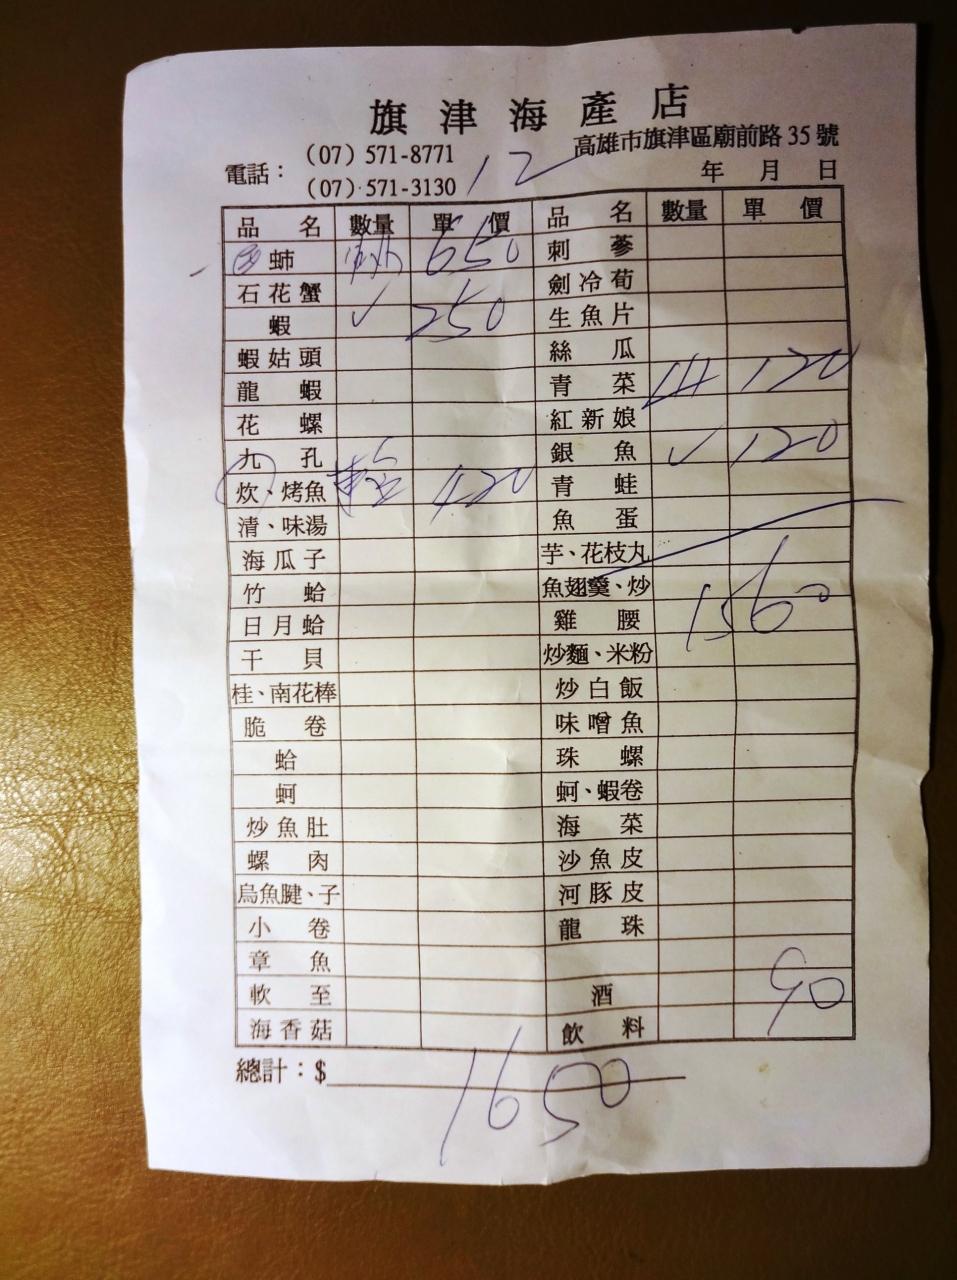 旗津海產店
高雄市旗津區廟前路 35 號
電話：
(07) 571-8771
(07) 571-3130
12
年 月 日
品名 數量 單價 品名 數量 單價
蚶 650 刺蔘
石花蟹 劍冷荀
蝦 ✓ 250 生魚片
蝦姑頭 絲瓜
龍蝦 青菜 120
花螺 紅新娘
九孔 銀魚 ✓ 120
炊、烤魚 420 青蛙
清、味湯 魚蛋
海瓜子 芋、花枝丸
竹蛤 魚翅羹、炒
日月蛤 雞腰 1560
干貝 炒麵、米粉
桂、南花棒 炒白飯
脆卷 味噌魚
蛤 珠螺
蚵 蚵、蝦卷
炒魚肚 海菜
螺肉 沙魚皮
烏魚腱、子 河豚皮
小卷 龍珠
章魚
軟至 酒 90
海香菇 飲料
總計：$ 1650